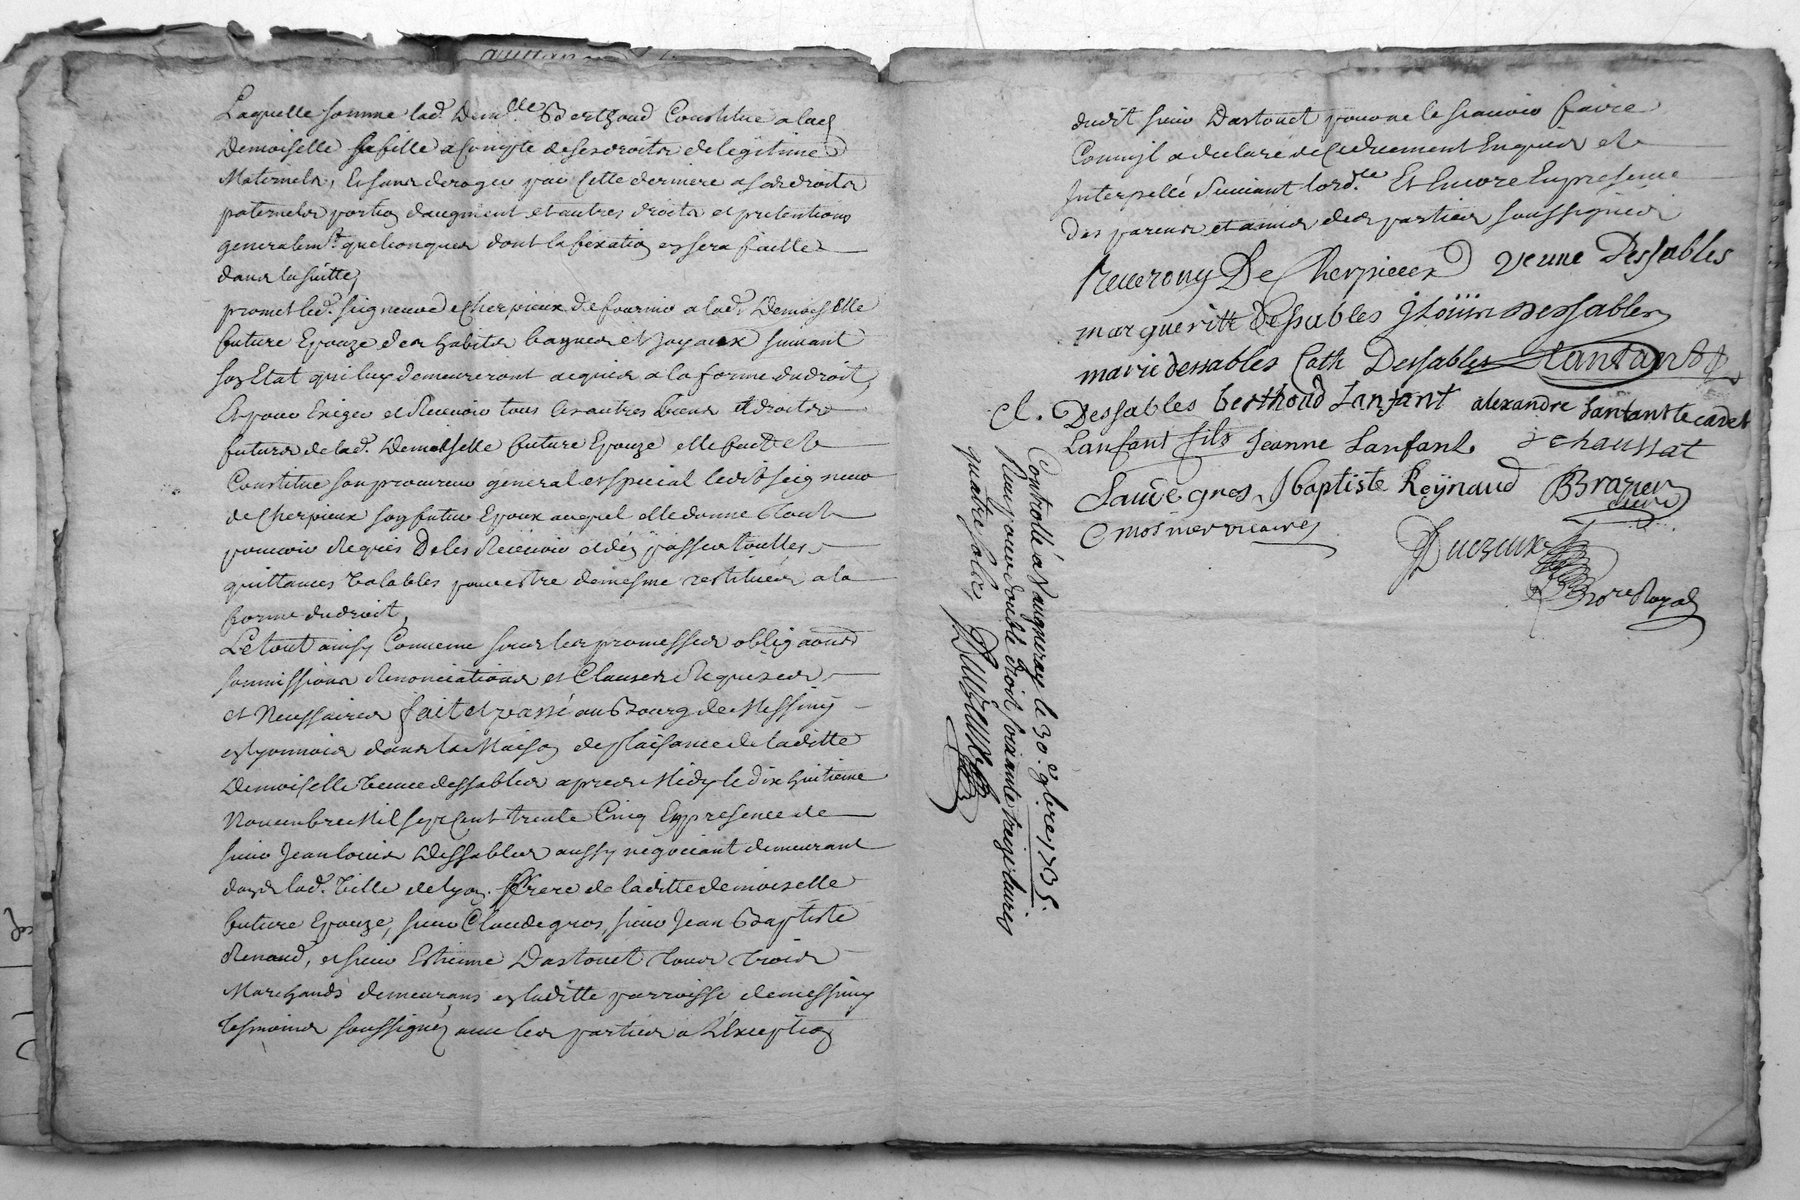 Laquelle somme lad. Dem.lle Berthoud Constitue a lad.
Demoiselle sa fille a Compte de ses droits de legitime
Maternels, Et sans deroger par Cette derniere a ses droits
paternels portion daugment et autres droits et pretentions
generalem.t quelconques dont la fixation en sera faitte
dans la suitte,
promet led. seigneur de Cherpieux de fournir a lad. Demoiselle
future Epouze des habits bagues et Joyaux suivant
son Etat qui luy demeureront acquis a la forme du droit,
Et pour Exiger et Recevoir tous les autres biens et droits
futurs de lad. Demoiselle future Epouze elle fait et
Constitue son procureur general et special ledit seigneur
de Cherpieux son futur Epoux auquel elle donne tout
pouvoir Requis De les Recevoir et d'en passer touttes
quittances Valables pour estre de mesme restitués a la
forme du droit,
Le tout ainsy Convenu sous les promesses obligaons
soumissions Renonciations et Clauses Requises
et Necessaires fait et passé au Bourg de Messimy
en lyonnois dans la Maison de plaisance de laditte
Demoiselle Veuve dessables apres Midy le dix huitieme
Novembre Mil sept Cent trente Cinq En presence de
sieur Jean louis Dessables aussy negociant demeurant
dans lad. Ville de lyon frere de laditte demoiselle
future Epouze, sieur Claude gros, sieur Jean Baptiste
Renaud, et sieur Estienne Dastouet tous trois
Marchands demeurans en laditte parroisse de messimy
tesmoins soussignés avec les parties a L'Exception
dudit sieur Dastouet pour ne le scavoir faire
Comm'il a declare de Ce deuement Enquis et
Interpellé suivant lord.ce Et Encore En presence
des parens et amis des parties soussignés
Reverony De Cherpieux veuve Dessables
marguerite Dessables J Loüis Dessables
marie dessables Cath Dessables Lanfant
Dessables berthoud Lanfant alexandre Lanfant le cadet
Lanfant fils Jeanne Lanfant dechaussat
Claude gros J baptiste Reÿnaud BBrazier
curé
C mosnier vicaire
Duczeux
No.re Royal
Cl.
Controllé a Vaugneray le 30.e 9.bre 1735.
Reçu pour double droit soixante treize livres
quatre solz Duczeux